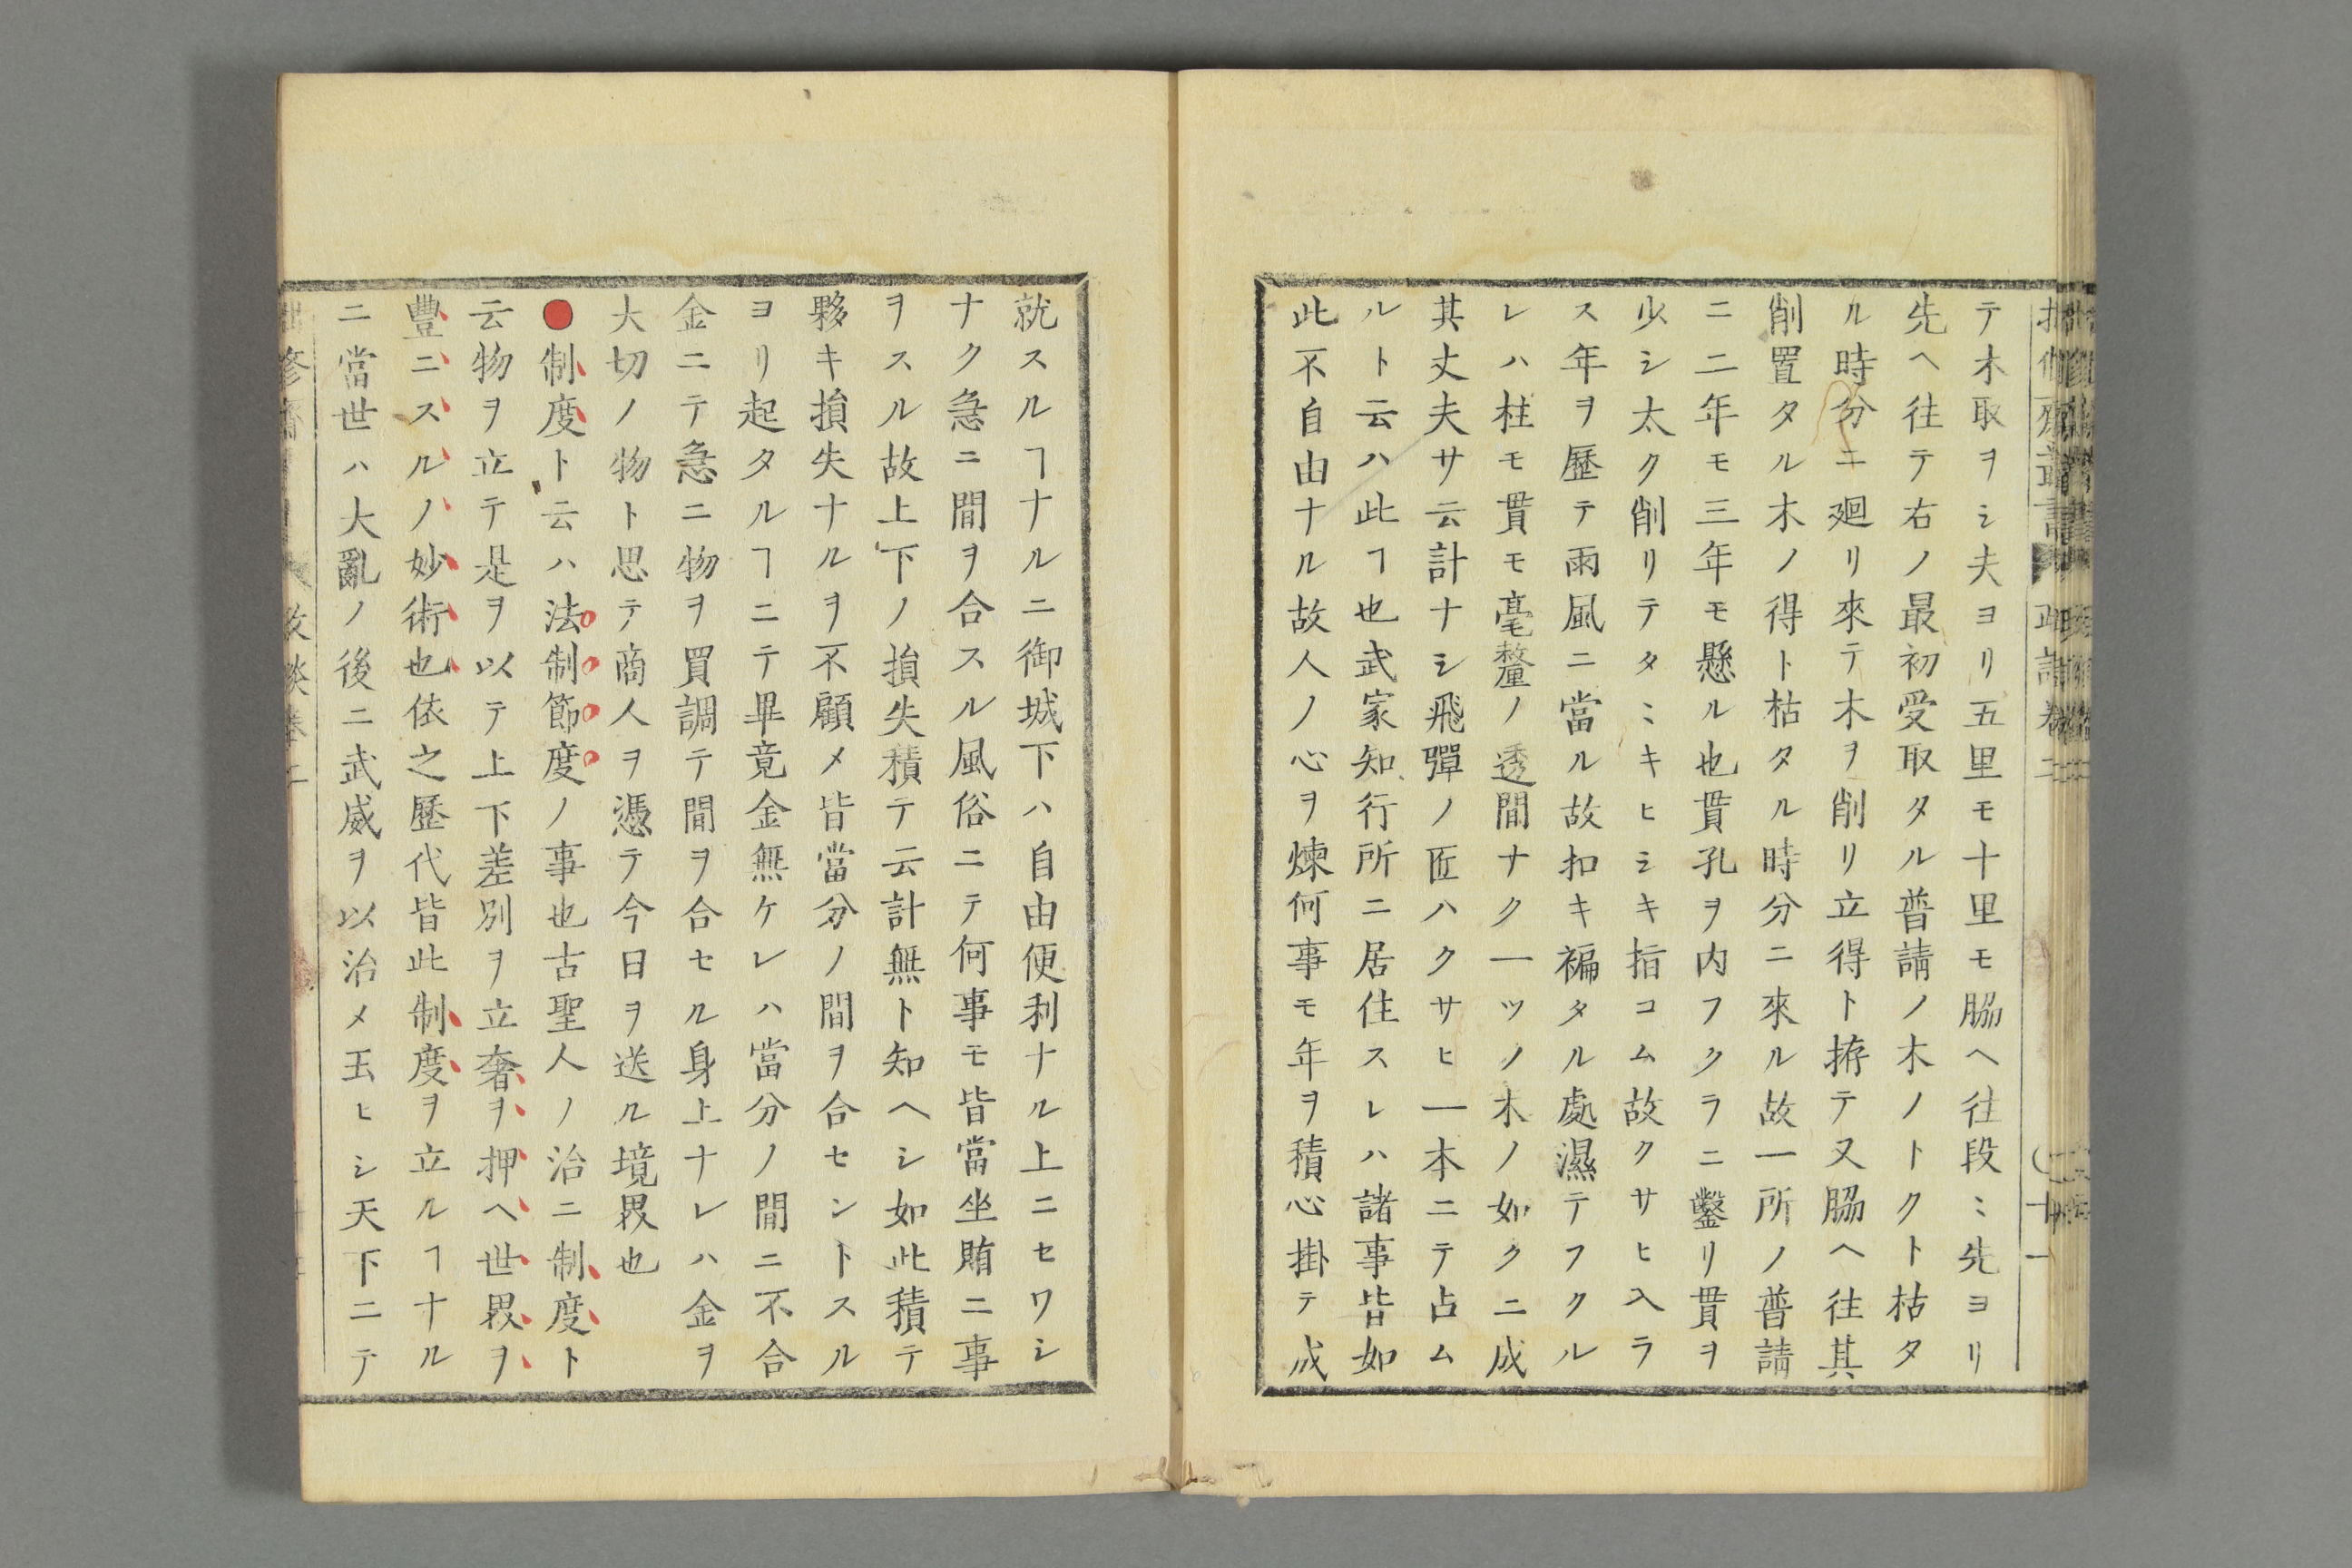 テ木取ヲシ夫ヨリ五里モ十里モ脇ヘ往段〻先ヨリ
先ヘ往テ右ノ最初受取タル普請ノ木ノトクト枯タ
ル時分ニ廻リ來テ木ヲ削リ立得ト拵テ又脇ヘ往其
削置タル木ノ得ト枯タル時分ニ來ル故一所ノ普請
ニ二年モ三年モ懸ル也貫孔ヲ内フクラニ鑿リ貫ヲ
少シ太ク削リテタヽキヒシキ指コム故クサヒ入ラ
ス年ヲ歷テ雨風ニ當ル故扣キ褊タル處濕テフクル
レハ柱モ貫モ毫釐ノ透間ナク一ツノ木ノ如クニ成
其丈夫サ云計ナシ飛彈ノ匠ハクサヒ一本ニテ占ム
ルト云ハ此ヿ也武家知行所ニ居住スレハ諸事皆如
此不自由ナル故人ノ心ヲ煉何事モ年ヲ積心掛テ成
就スルヿナルニ御城下ハ自由便利ナル上ニセワシ
ナク急ニ間ヲ合スル風俗ニテ何事モ皆當坐賄ニ事
ヲスル故上下ノ損失積テ云計無ト知ヘシ如此積テ
夥キ損失ナルヲ不顧メ皆當分ノ間ヲ合セントスル
ヨリ起タルヿニテ畢竟金無ケレハ當分ノ間ニ不合
金ニテ急ニ物ヲ買調テ間ヲ合セル身上ナレハ金ヲ
大切ノ物ト思テ商人ヲ憑テ今日ヲ送ル境界也
●制度ト云ハ法制節度ノ事也古聖人ノ治ニ制度ト
云物ヲ立テ是ヲ以テ上下差別ヲ立奢ヲ押ヘ世界ヲ
豐ニスルノ妙術也依之歷代皆此制度ヲ立ルヿナル
ニ當世ハ大亂ノ後ニ武威ヲ以治メ玉ヒシ天下ニテ